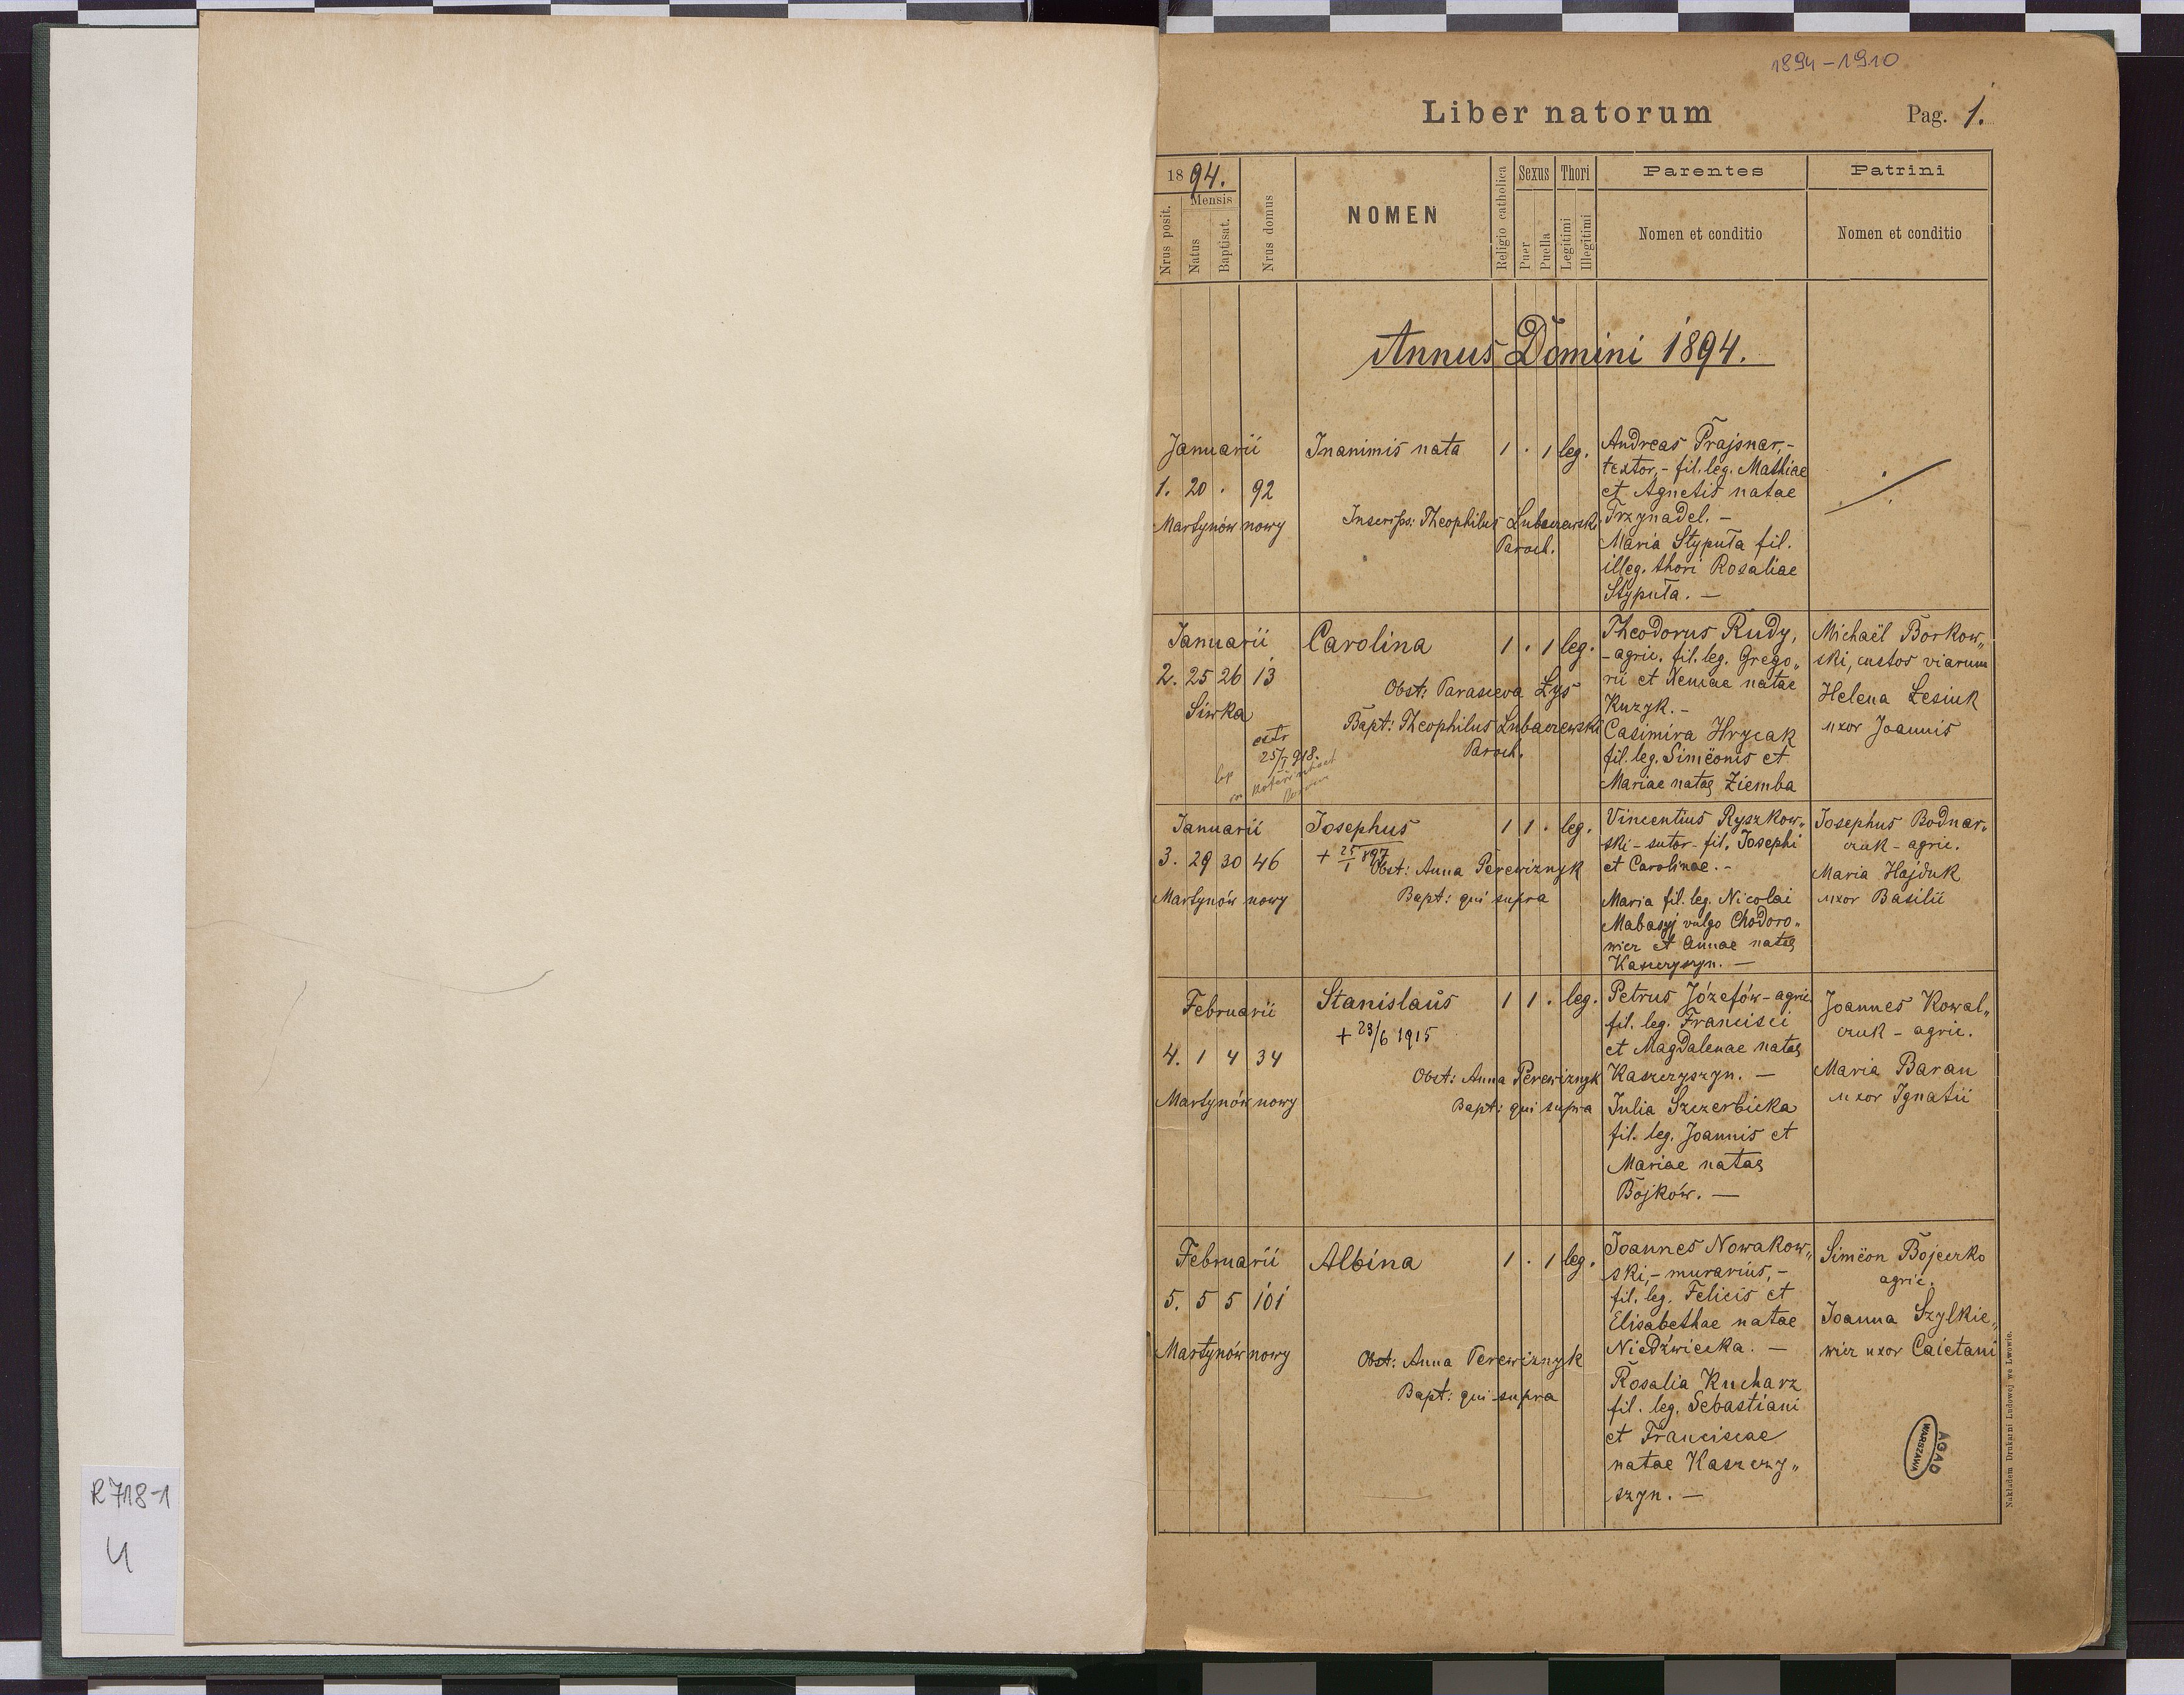 1894-1910
Liber natorum
Pag. 1.
1894.
Mensis
Nrus posit.
Natus
Baptisat.
Nrus domus
NOMEN
Religio catholica
Sexus
Puer
Puella
Thori
Legitimi
Illegitimi
Parentes
Nomen et conditio
Patrini
Nomen et conditio
Annus Domini 1894.
Januarii
1. 20 . 92
Martynów nowy
Inanimis nata 1 . 1 leg.
Inscrips: Theophilus Lubaczewski
Paroch.
Andreas Prajsnar,-
textor,- fil. leg. Mathiae
et Agnetis natae
Trzynadel. -
Maria Stypuła fil.
illeg. thori Rosaliae
Stypuła. -
Januarii
2. 25 26 13
Siwka
extr
25/I 918.
Carolina 1 . 1 leg.
Obst: Parasceva Łys
Bapt: Theophilus Lubaczewski
Paroch.
Theodorus Rudy,
- agric. fil. leg. Grego„
rii et Xeniae natae
Kuzyk. -
Casimira Hrycak
fil. leg. Simëonis et
Mariae natae Ziemba
Michaël Borkow„
ski, custos viarum
Helena Lesiuk
uxor Joannis
Januarii
3. 29 30 46
Martynów nowy
Josephus 1 1 . leg.
+ 25/1 897
Obst: Anna Perewiznyk
Bapt: qui supra
Vincentius Ryszkow„
ski - sutor - fil. Josephi
et Carolinae. -
Maria fil. leg. Nicolai
Mabasyj vulgo Chodoro„
wicz et Annae natae
Kaszczyszyn. -
Josephus Bodnar„
czuk - agric.
Maria Hajduk
uxor Basilii
Februarii
4. 1 4 34
Martynów nowy
Stanislaus 1 1 . leg.
+ 23/6 1915
Obst: Anna Perewiznyk
Bapt: qui supra
Petrus Józefów - agric.
fil. leg. Francisci
et Magdalenae natae
Kaszczyszyn. -
Julia Szczerbicka
fil. leg. Joannis et
Mariae natae
Bojków. -
Joannes Kowal„
czuk - agric.
Maria Baran
uxor Ignatii
Februarii
5. 5 5 101
Martynów nowy
Albina 1 . 1 leg.
Obst: Anna Perewiznyk
Bapt: qui supra
Joannes Nowakow„
ski,- murarius,-
fil. leg. Felicis et
Elisabethae natae
Niedźwiecka. -
Rosalia Kucharz
fil. leg. Sebastiani
et Franciscae
natae Kaszczy„
szyn. -
Simëon Bojeczko
agric.
Joanna Szylkie„
wicz uxor Caietani
AGAD
WARSZAWA
Nakładem Drukarni Ludowej we Lwowie.
R718-1
4